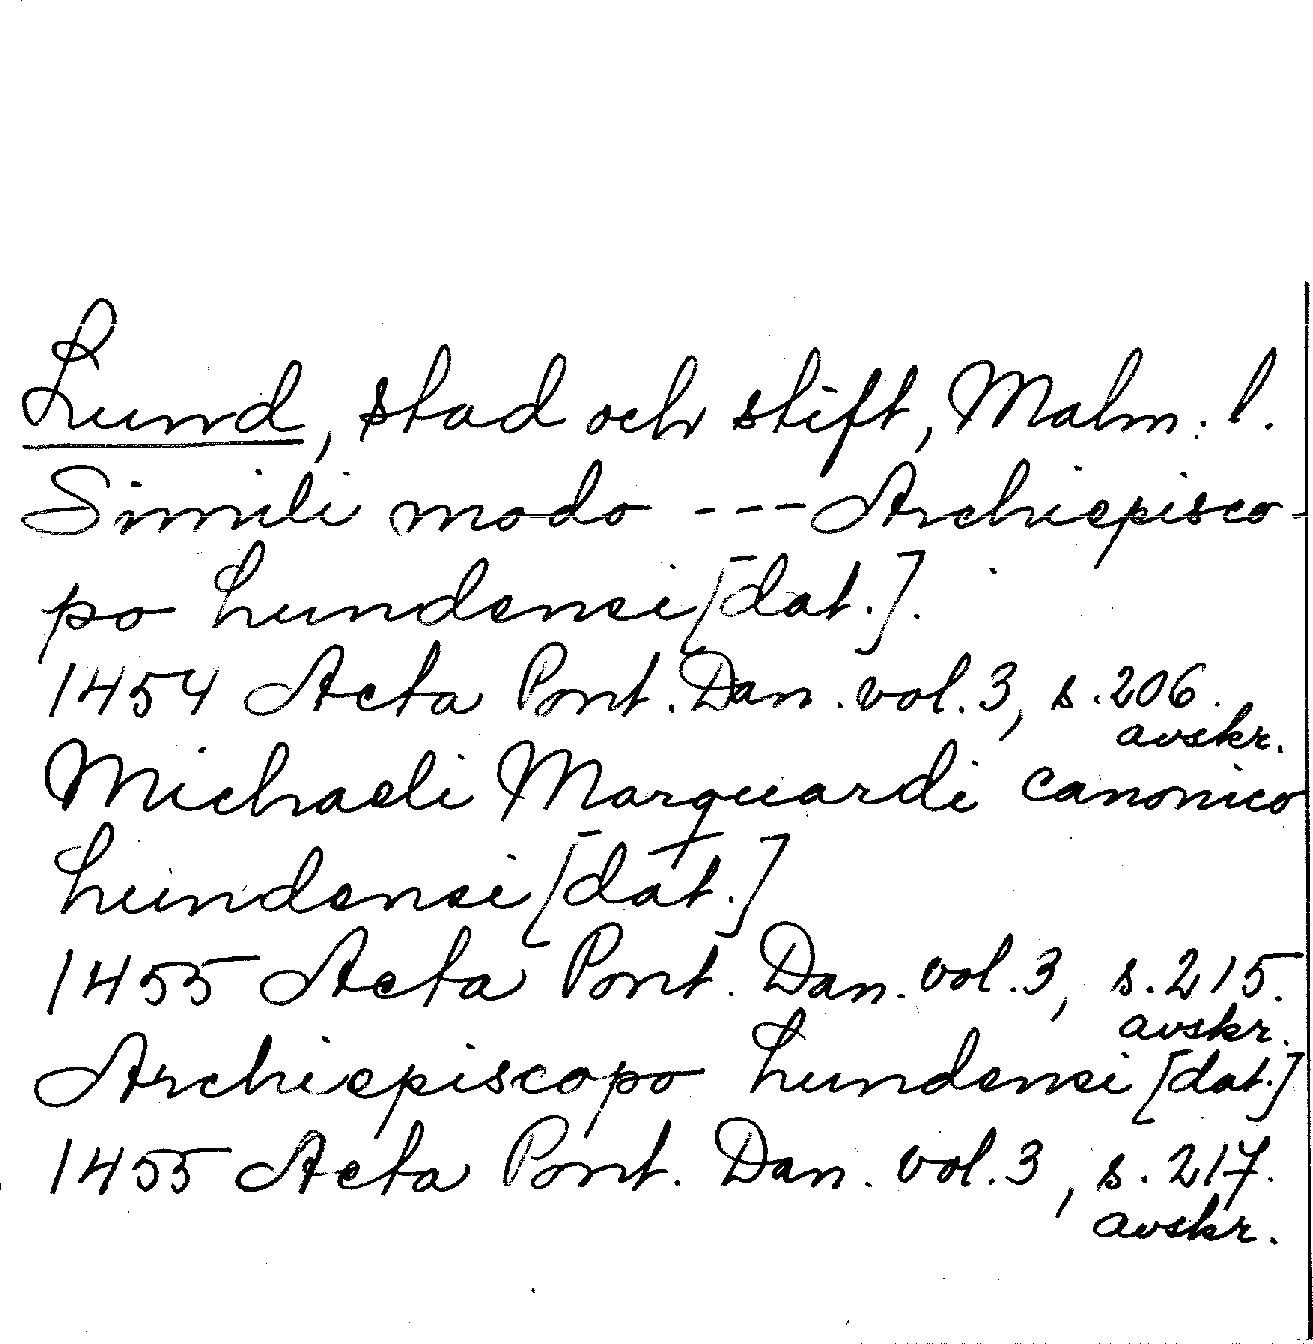 Lund, stad och stift, Malm. l.
Simili modo --- Archiepisco-
po lundensi [dat.].
1454 Acta Pont. Dan. vol. 3, s. 206.
avskr.
Michaeli Marquardi canonico
lundensi [dat.]
1455 Acta Pont. Dan. vol. 3, s. 215.
avskr.
Archiepiscopo lundensi [dat.]
1455 Acta Pont. Dan. vol. 3, s. 217.
avskr.